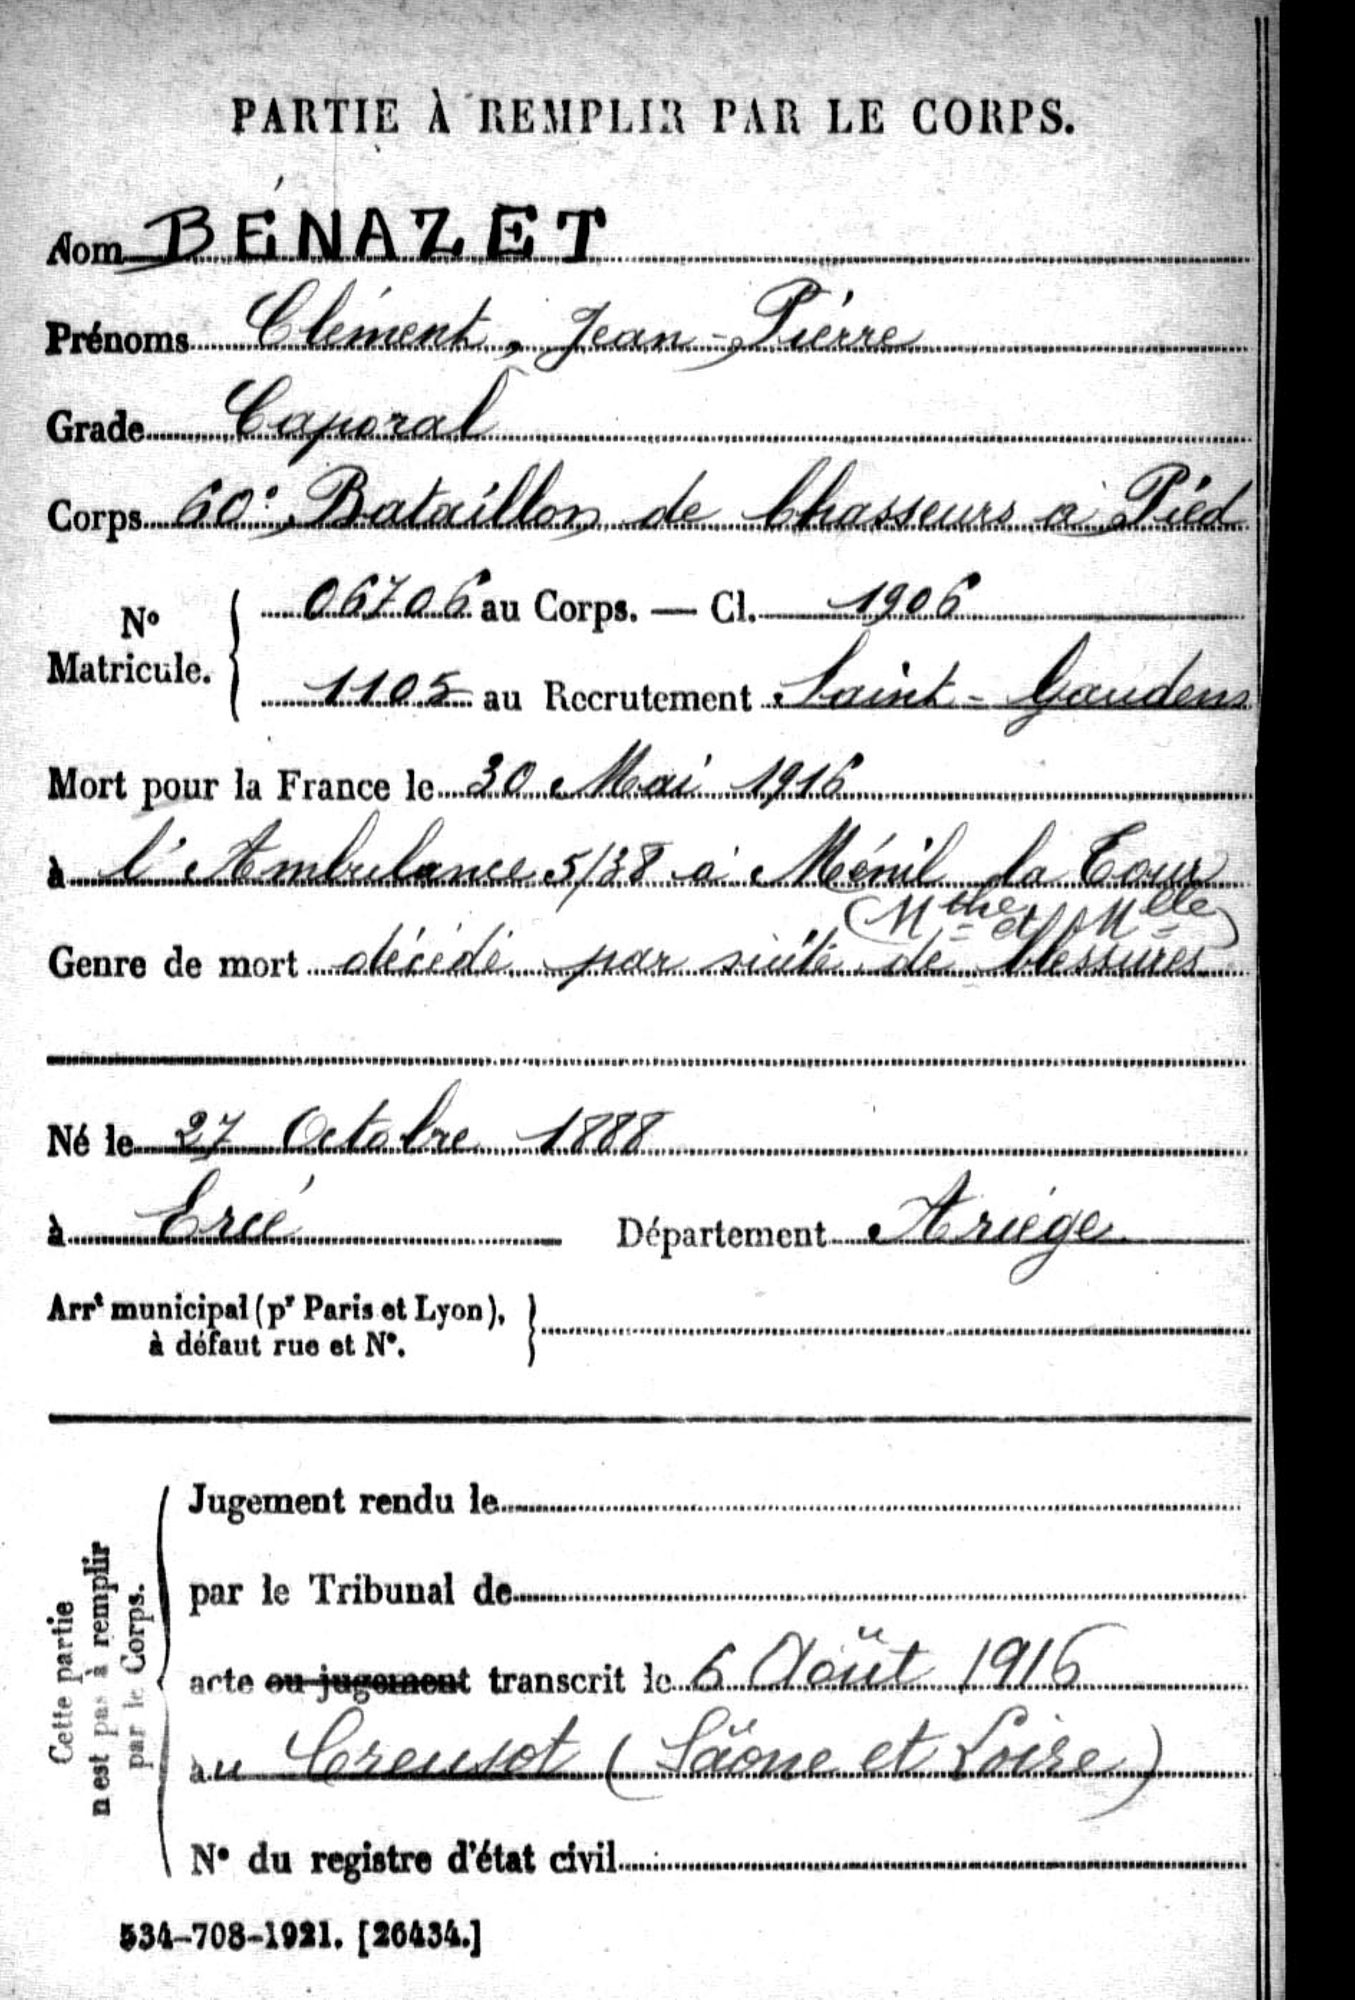 PARTIE À REMPLIR PAR LE CORPS.
Nom BÉNAZET
Prénoms Clément, Jean-Pierre
Grade Caporal
Corps 60e Bataillon de Chasseurs à Pied
No Matricule. 06706 au Corps. — Cl. 1906
1105 au Recrutement Saint-Gaudens
Mort pour la France le 30 Mai 1916
à l'Ambulance 5/38 à Ménil la Tour
(Mthe et Mlle)
Genre de mort décédé par suite de blessures
Né le 27 Octobre 1888
à Ercé Département Ariége
Arrt municipal (pr Paris et Lyon),
à défaut rue et No.
Cette partie
n'est pas à remplir
par le Corps.
Jugement rendu le
par le Tribunal de
acte ou jugement transcrit le 6 Août 1916
au Creusot (Saône et Loire)
No du registre d'état civil
534-708-1921. [26434.]